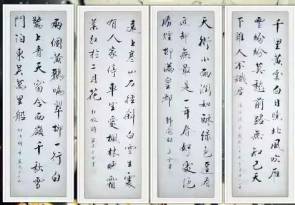 千里黃雲白日曛北風吹雁
雪紛紛莫愁前路無知己天
下誰人不識君
天街小雨潤如酥草色遙看
近却無最是一年春好處絕
勝煙柳滿皇都
遠上寒山石徑斜白雲生處
有人家停車坐愛楓林晚霜
葉紅於二月花
兩個黃鸝鳴翠柳一行白
鷺上青天窗含西嶺千秋雪
門泊東吳萬里船